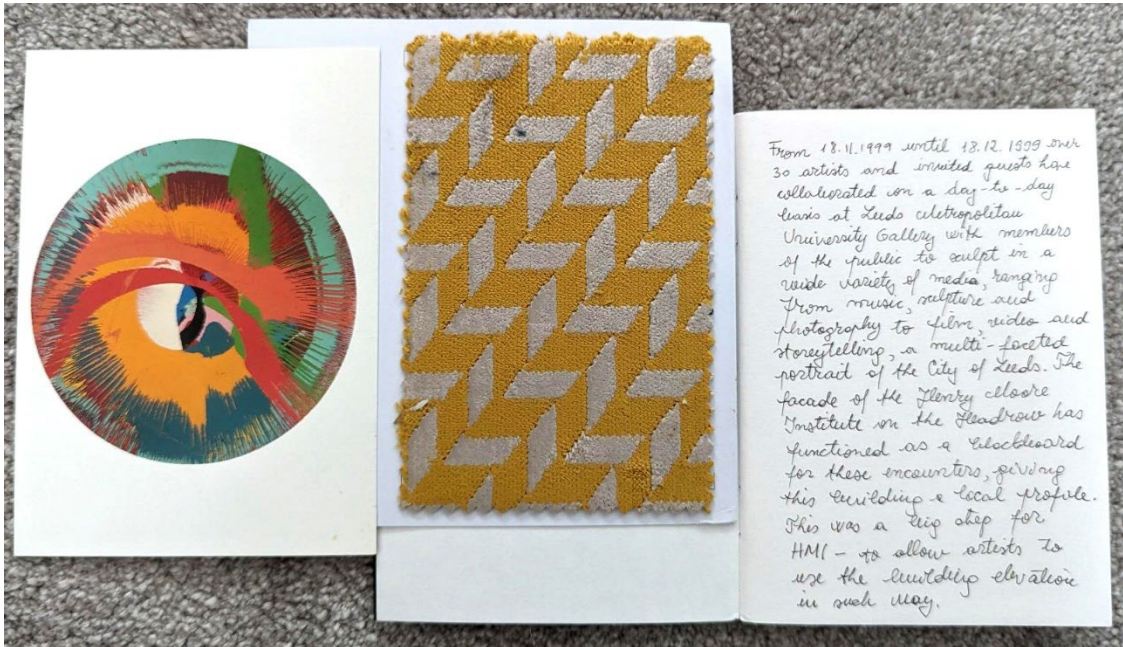 From 18.11.1999 until 18.12.1999 over
30 artists and invited guests have
collaborated on a day-to-day
basis at Leeds Metropolitan
University Gallery with members
of the public to sculpt in a
wide variety of media, ranging
from music, sculpture and
photography to film, video and
storeytelling, a multi-faceted
portrait of the City of Leeds. The
facade of the Henry Moore
Institute on the Headrow has
functioned as a blackboard
for these encounters, giving
this building a local profile.
This was a big step for
HMI - to allow artists to
use the building elevation
in such way.